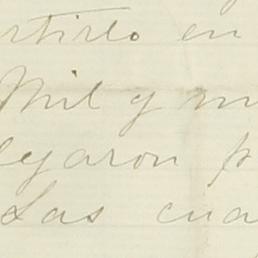 rtirlo en
Mil y m
lejaron p
Las cua